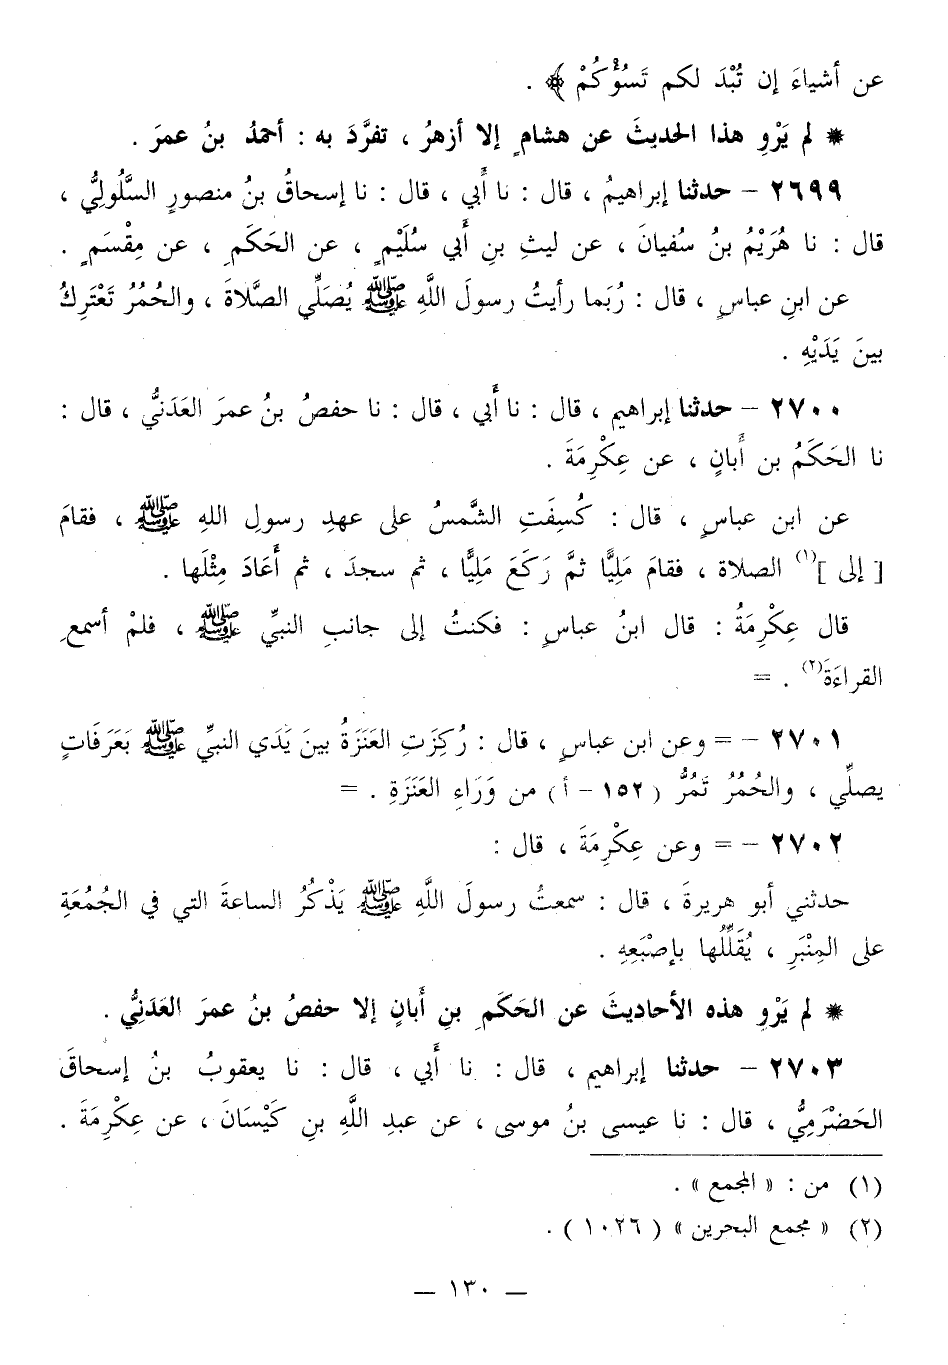 عن أشياءَ إن تُبْدَ لكم تَسُؤْكُمْ ﴾ .
* لم يَرْوِ هذا الحديثَ عن هشامٍ إلا أزهرُ ، تفرَّدَ به : أحمدُ بنُ عمرَ .
٢٦٩٩ - حدثنا إبراهيمُ ، قال : نا أَبي ، قال : نا إسحاقُ بنُ منصورٍ السَّلُوليُّ ،
قال : نا هُرَيْمُ بنُ سُفيانَ ، عن ليثِ بنِ أَبي سُلَيْمٍ ، عن الحَكَمِ ، عن مِقْسَمٍ .
عن ابنِ عباسٍ ، قال : رُبَما رأيتُ رسولَ اللَّهِ ﷺ يُصَلِّي الصَّلاةَ ، والحُمُرُ تَعْتَرِكُ
بينَ يَدَيْهِ .
٢٧٠٠ - حدثنا إبراهيم ، قال : نا أَبي ، قال : نا حفصُ بنُ عمرَ العَدَنيُّ ، قال :
نا الحَكَمُ بن أَبانٍ ، عن عِكْرِمَةَ .
عن ابن عباسٍ ، قال : كُسِفَتِ الشَّمسُ على عهدِ رسولِ اللهِ ﷺ ، فقامَ
[ إلى ](١) الصلاة ، فقامَ مَلِيًّا ثمَّ رَكَعَ مَلِيًّا ، ثم سجدَ ، ثم أَعَادَ مِثْلَها .
قال عِكْرِمَةُ : قال ابنُ عباسٍ : فكنتُ إلى جانبِ النبيِّ ﷺ ، فلمْ أسمعِ
القراءَةَ(٢) . =
٢٧٠١ - = وعن ابن عباسٍ ، قال : رُكِزَتِ العَنَزَةُ بينَ يَدَي النبيِّ ﷺ بَعَرَفَاتٍ
يصلِّي ، والحُمُرُ تَمُرُّ ( ١٥٢ - أ ) من وَرَاءِ العَنَزَةِ . =
٢٧٠٢ - = وعن عِكْرِمَةَ ، قال :
حدثني أبو هريرةَ ، قال : سمعتُ رسولَ اللَّهِ ﷺ يَذْكُرُ الساعةَ التي في الجُمُعَةِ
على المِنْبَرِ ، يُقَلِّلُها بإصْبَعِهِ .
* لم يَرْوِ هذه الأحاديثَ عن الحَكَمِ بنِ أَبانٍ إلا حفصُ بنُ عمرَ العَدَنِيُّ .
٢٧٠٣ - حدثنا إبراهيم ، قال : نا أَبي ، قال : نا يعقوبُ بنُ إسحاقَ
الحَضْرَمِيُّ ، قال : نا عيسى بنُ موسى ، عن عبدِ اللَّهِ بنِ كَيْسَانَ ، عن عِكْرِمَةَ .
(١) من : « المجمع » .
(٢) « مجمع البحرين » ( ١٠٢٦ ) .
— ١٣٠ —